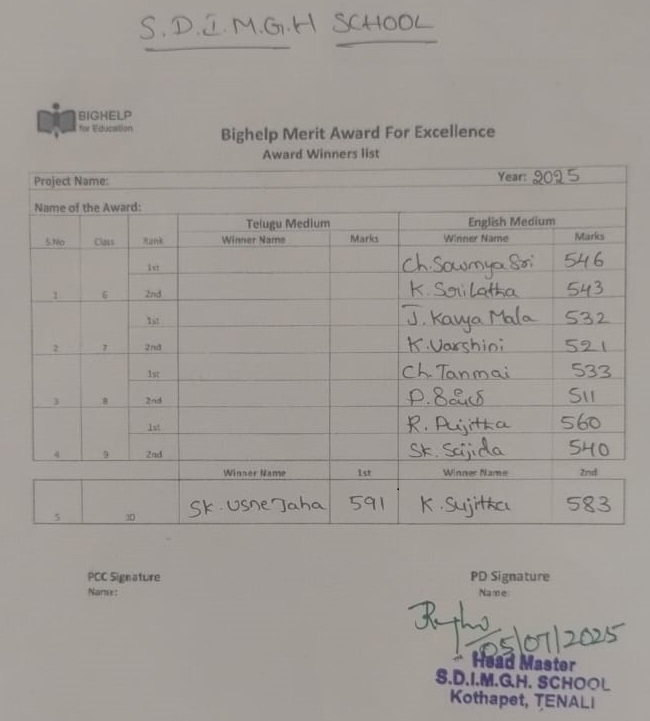 S.D.I.M.G.H SCHOOL
BIGHELP
for Education
Bighelp Merit Award For Excellence
Award Winners list
Project Name: Year: 2025
Name of the Award:
Telugu Medium English Medium
S.No Class Rank Winner Name Marks Winner Name Marks
1st Ch.Sowmya Sri 546
1 6 2nd K. SriLatha 543
1st J. Kavya Mala 532
2 7 2nd K.Varshini 521
1st Ch.Tanmai 533
3 8 2nd P. 511
1st R. Pujitha 560
4 9 2nd Sk. Sajida 540
Winner Name 1st Winner Name 2nd
5 10 Sk. Usne Jaha 591 K. Sujitha 583
PCC Signature PD Signature
Name: Name:
05/07/2025
Head Master
S.D.I.M.G.H. SCHOOL
Kothapet, TENALI